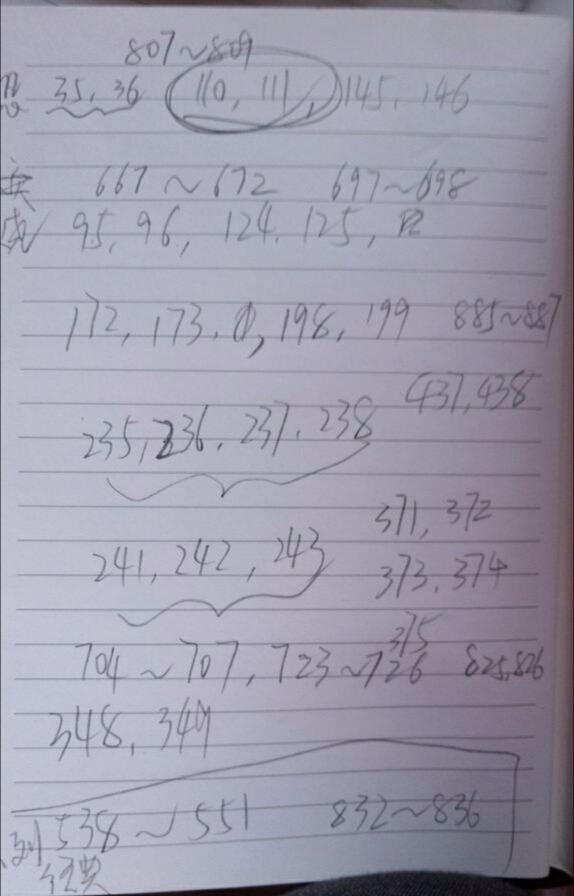 807~809
35, 36 110, 111, 145, 146
667~672 697~698
感 95, 96, 124, 125,
172, 173, 198, 199 885~887
437, 438
235, 236, 237, 238
371, 372
241, 242, 243
373, 374
375
704~707, 723~726 825, 826
348, 349
到 538~551 832~836
经典